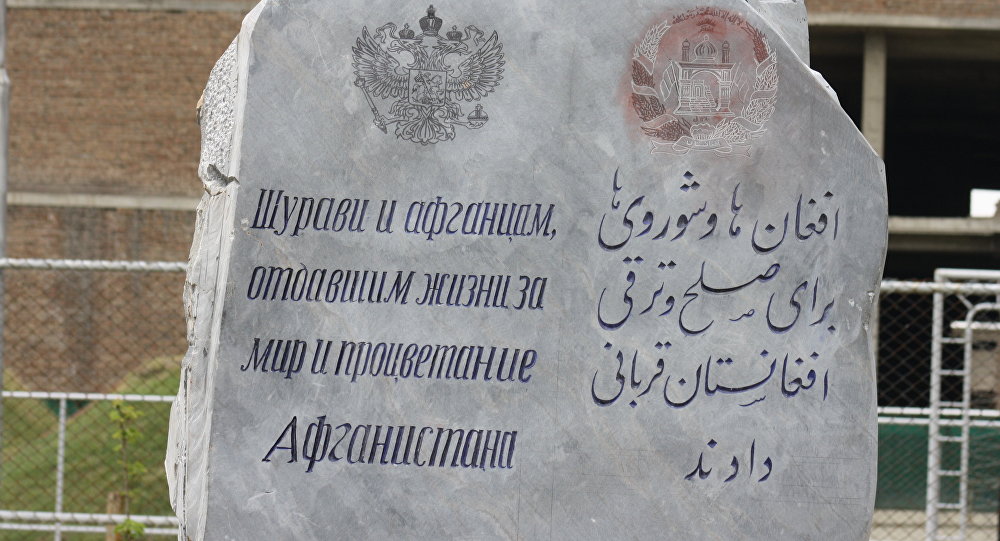 Шурави и афганцам,
отдавшим жизни за
мир и процветание
Афганистана
افغان ها و شوروی ها
برای صلح و ترقی
افغانستان قربانی
دادند